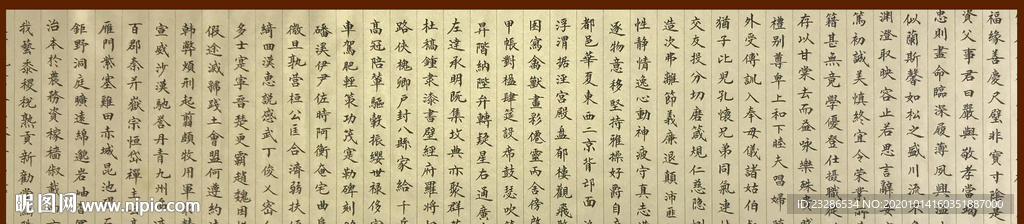 福緣善慶尺璧非寶寸陰是
資父事君曰嚴與敬孝當竭
忠則盡命臨深履薄夙興溫
似蘭斯馨如松之盛川流不
淵澄取映容止若思言辭安
篤初誠美慎終宜令榮業
籍甚無竟學優登仕攝職
存以甘棠去而益詠樂殊
禮別尊卑上和下睦夫唱婦
外受傅訓入奉母儀諸姑伯
猶子比兒孔懷兄弟同氣連
交友投分切磨箴規仁慈隱
造次弗離節義廉退顛沛匪
性靜情逸心動神疲守真志
逐物意移堅持雅操好爵自
都邑華夏東西二京背邙面
浮渭據涇宮殿盤郁樓觀飛
圖寫禽獸畫彩僊靈丙舍傍
甲帳對楹肆筵設席鼓瑟吹
昇階納陛弁轉疑星右通廣
左達承明既集墳典亦聚群
杜稿鍾隸漆書壁經府羅將
路俠槐卿戶封八縣家給千
高冠陪輦驅轂振纓世祿侈
車駕肥輕策功茂實勒碑刻
磻溪伊尹佐時阿衡奄宅曲
微旦孰營桓公匡合濟弱扶
綺回漢惠說感武丁俊乂密
多士寔寧晉楚更霸趙魏困
假途滅虢踐土會盟何遵約
韓弊煩刑起翦頗牧用軍最
宣威沙漠馳譽丹青九州
百郡秦并嶽宗恆岱禪主
雁門紫塞雞田赤城昆池
鉅野洞庭曠遠綿邈岩岫
治本於農務資稼穡俶載
我藝黍稷稅熟貢新勸賞
昵图网 www.nipic.com
ID:23286534 NO:20201014160351887000